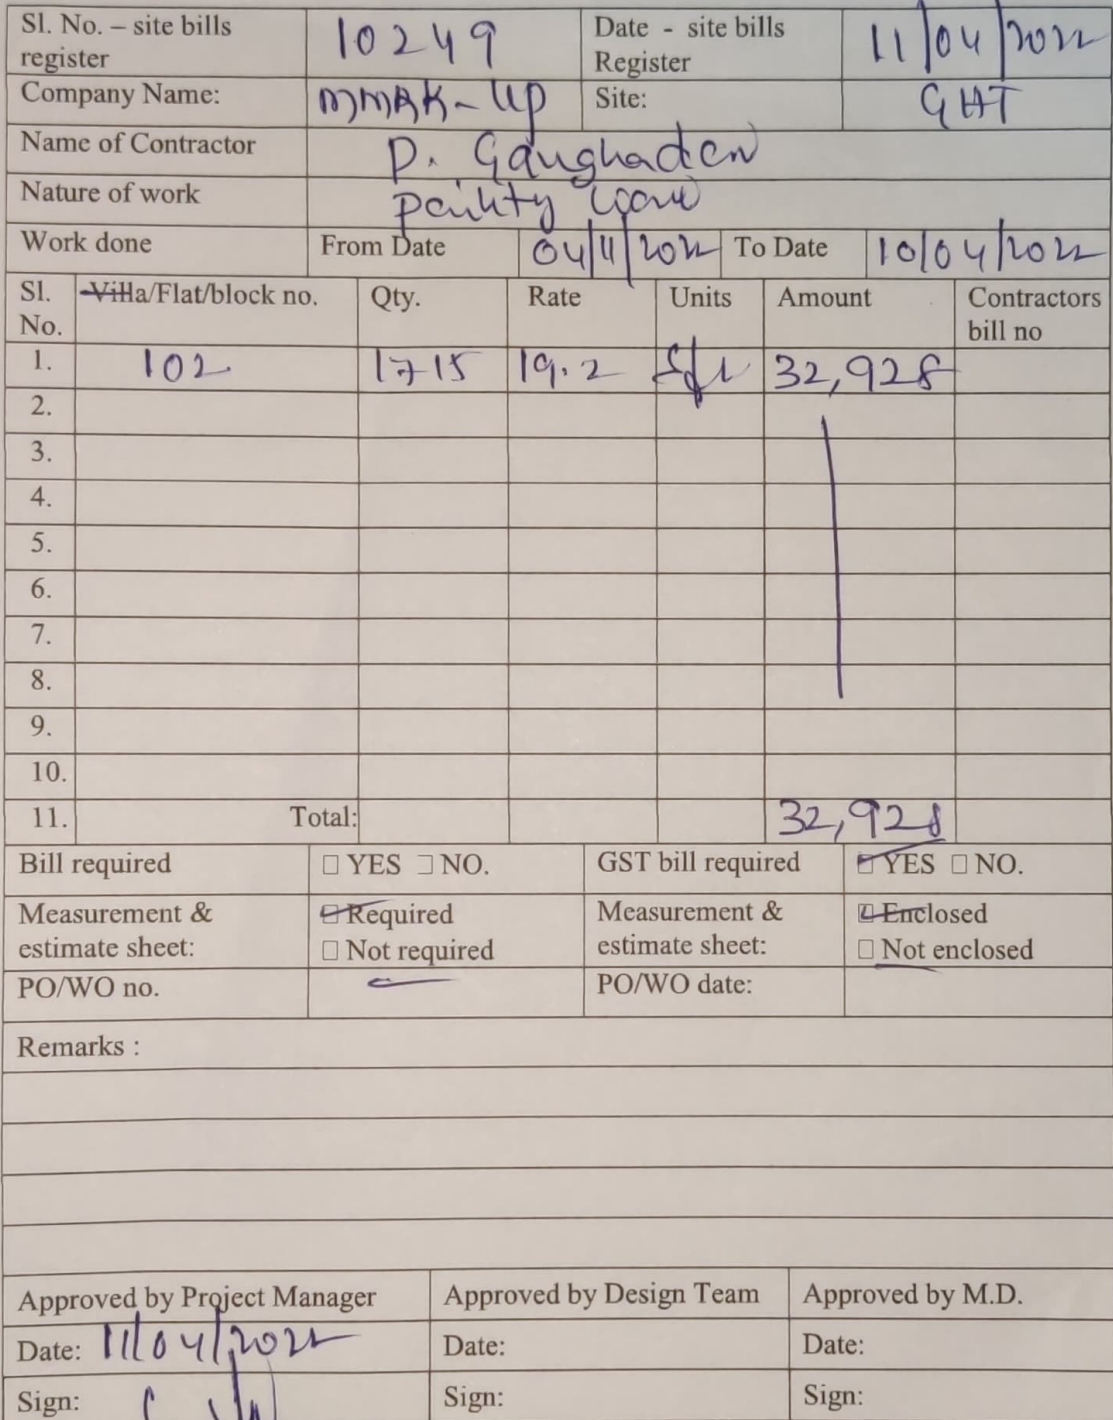 Sl. No. – site bills register 10249 Date - site bills Register 11/04/2022
Company Name: MMRK-UP Site: GHT
Name of Contractor P.
Nature of work
Work done From Date 04/11/2022 To Date 10/04/2022
Sl. No. Villa/Flat/block no. Qty. Rate Units Amount Contractors bill no
1. 102 1715 19.2 sft 32,928
2.
3.
4.
5.
6.
7.
8.
9.
10.
11. Total: 32,928
Bill required ☐ YES ☐ NO. GST bill required ☑ YES ☐ NO.
Measurement & estimate sheet: ☑ Required ☐ Not required Measurement & estimate sheet: ☑ Enclosed ☐ Not enclosed
PO/WO no. — PO/WO date:
Remarks :
Approved by Project Manager Approved by Design Team Approved by M.D.
Date: 11/04/2022 Date: Date:
Sign: Sign: Sign: